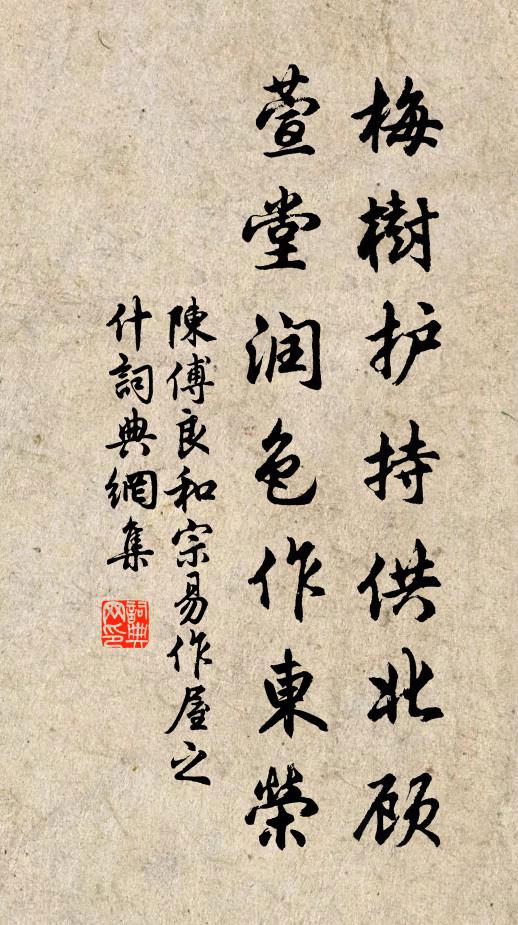 梅樹护持供北顾
萱堂润色作東榮
陳傅良和宗易作屋之
什詞典網集
詞典
网印